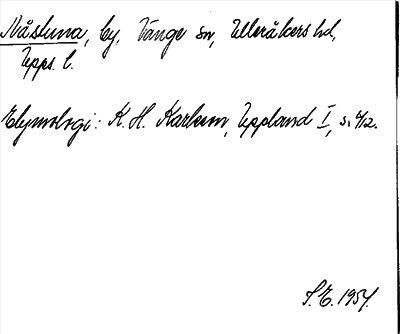 Nåstuna, by, Vänge sn, Ulleråkers hd,
Upps. l.
Etymologi: K. H. Karlsson, Uppland I, s. 412.
S.E. 1954.